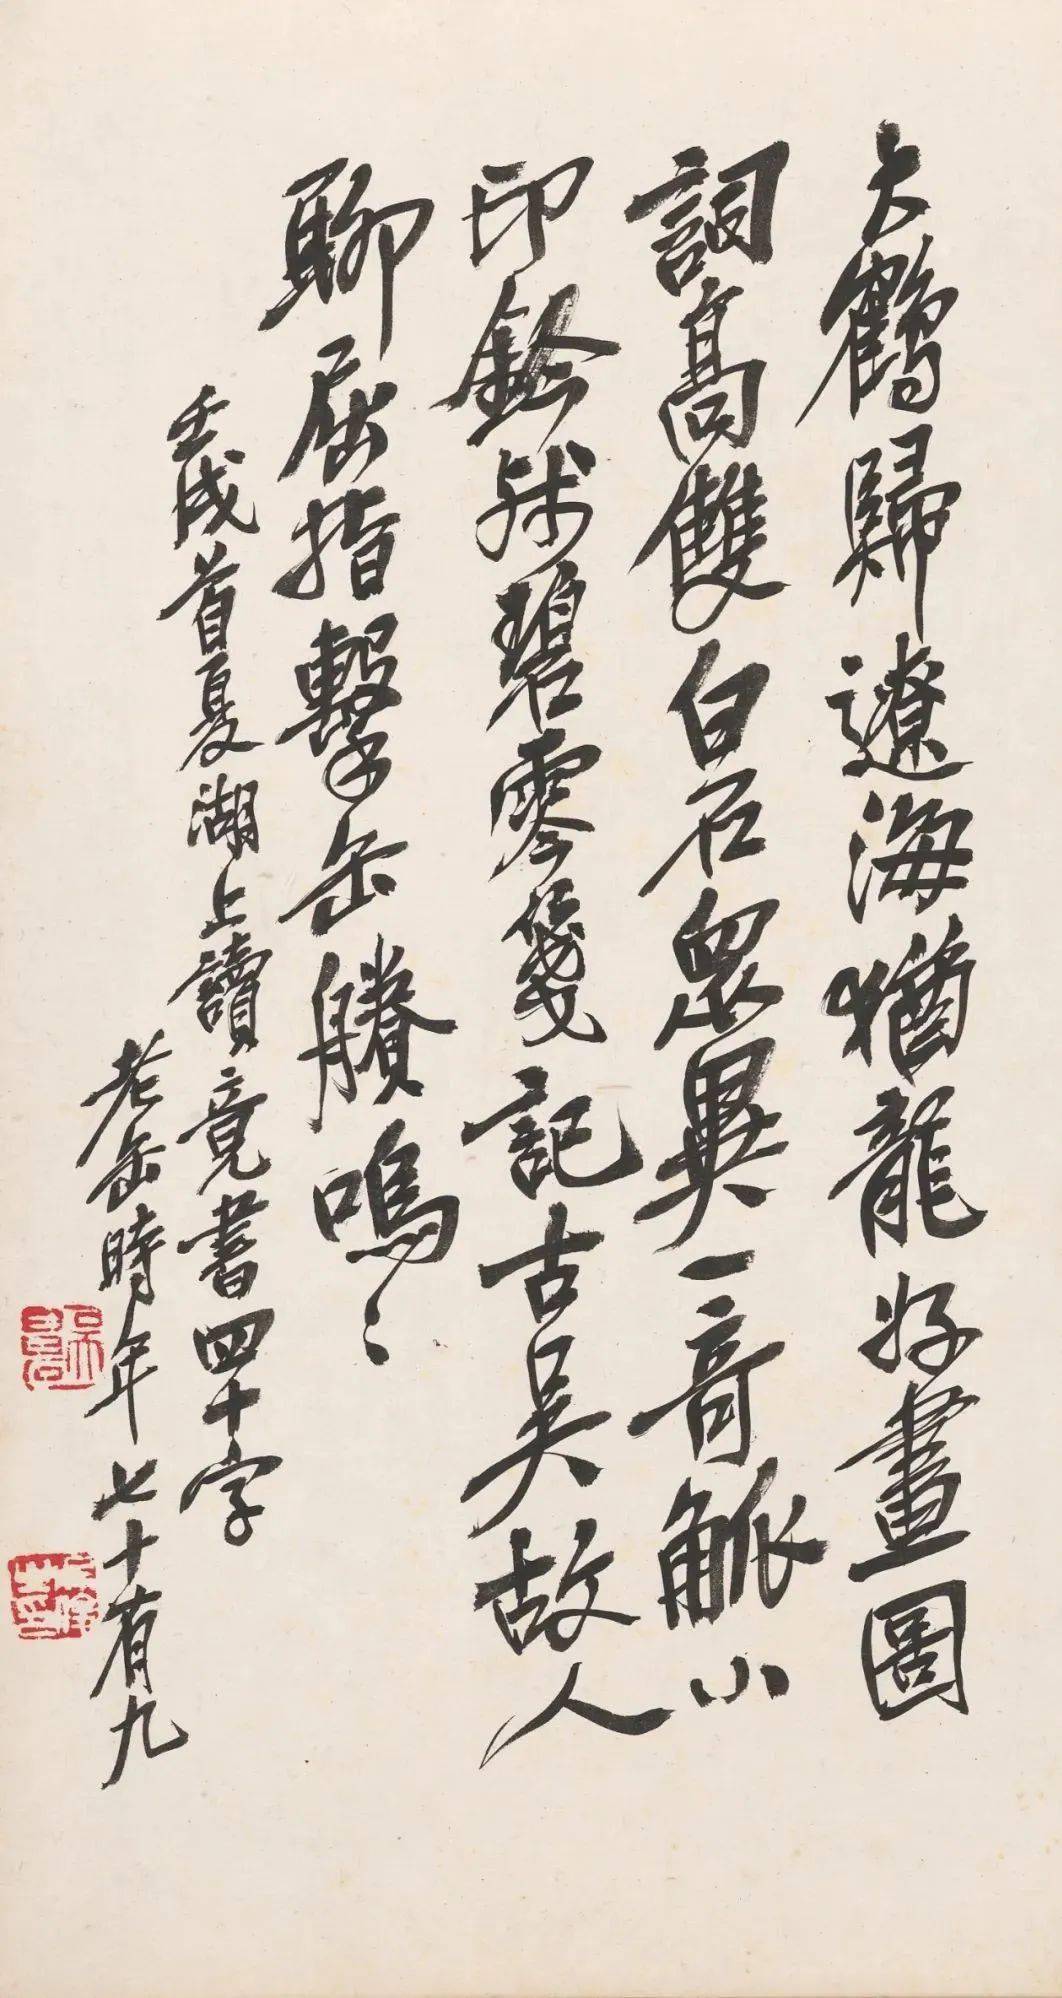 大鶴歸遼海猶龍好畫圖
詞高雙白石眾異一奇觚小
印鈐殘碧零箋記古吳故人
聊屈指擊缶賸嗚〻
壬戌首夏湖上讀竟書四十字
老缶時年七十有九